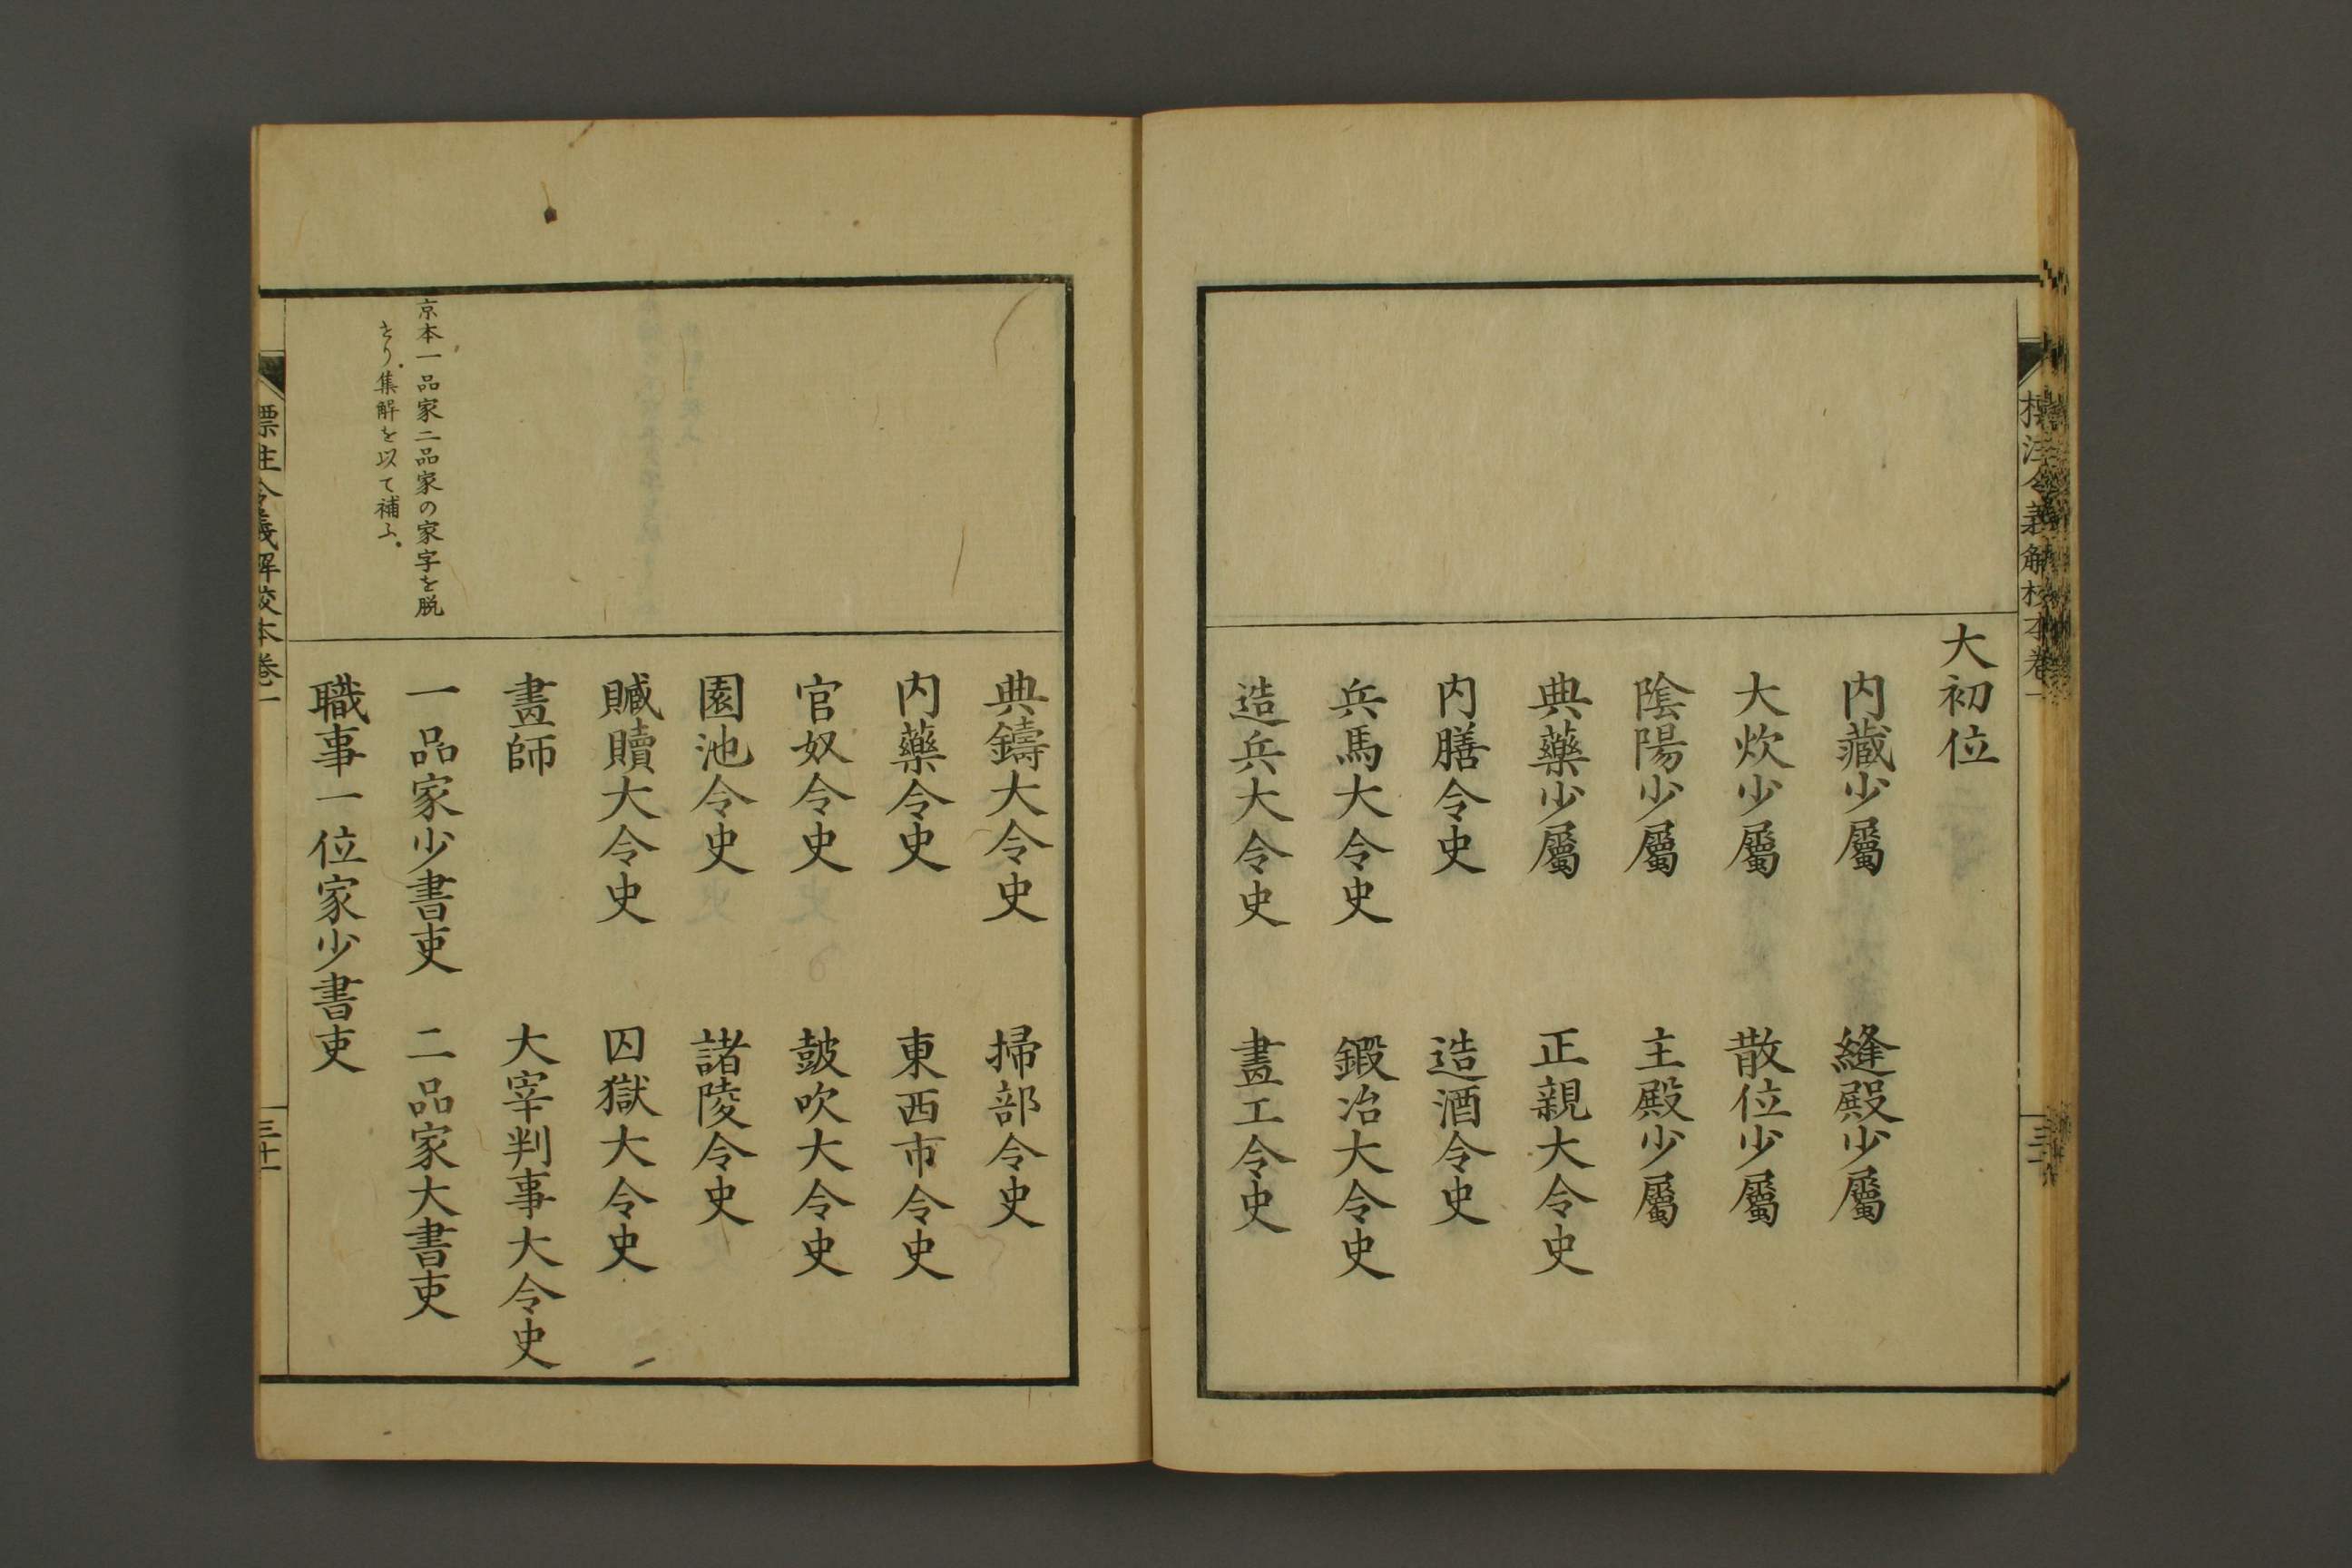 標注令義解校本卷一
大初位
内藏少屬　縫殿少屬
大炊少屬　散位少屬
陰陽少屬　主殿少屬
典藥少屬　正親大令史
内膳令史　造酒令史
兵馬大令史　鍛冶大令史
造兵大令史　畫工令史
典鑄大令史　掃部令史
内藥令史　東西市令史
官奴令史　鼓吹大令史
園池令史　諸陵令史
贓贖大令史　囚獄大令史
畫師　大宰判事大令史
京本一品家二品家の家字を脱
せり。集解を以て補ふ。
一品家少書吏　二品家大書吏
職事一位家少書吏
標注令義解校本卷一
三十一